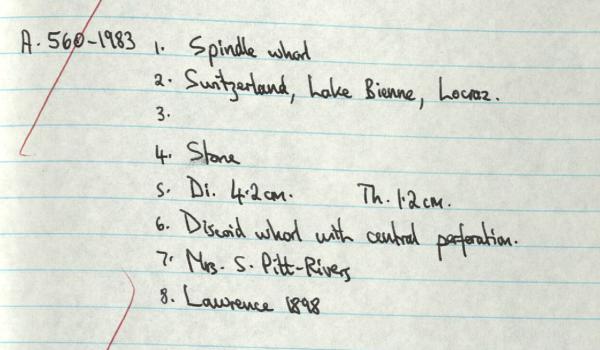 A. 560-1983 1. Spindle whorl
2. Switzerland, Lake Bienne, Locraz.
3.
4. Stone
5. Di. 4.2cm. Th. 1.2cm.
6. Discoid whorl with central perforation.
7. Mrs. S. Pitt-Rivers
8. Lawrence 1898